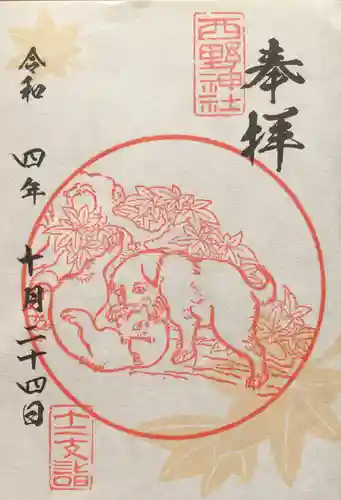 奉拝
西野神社
令和 四年 十月二十四日
十二支詣